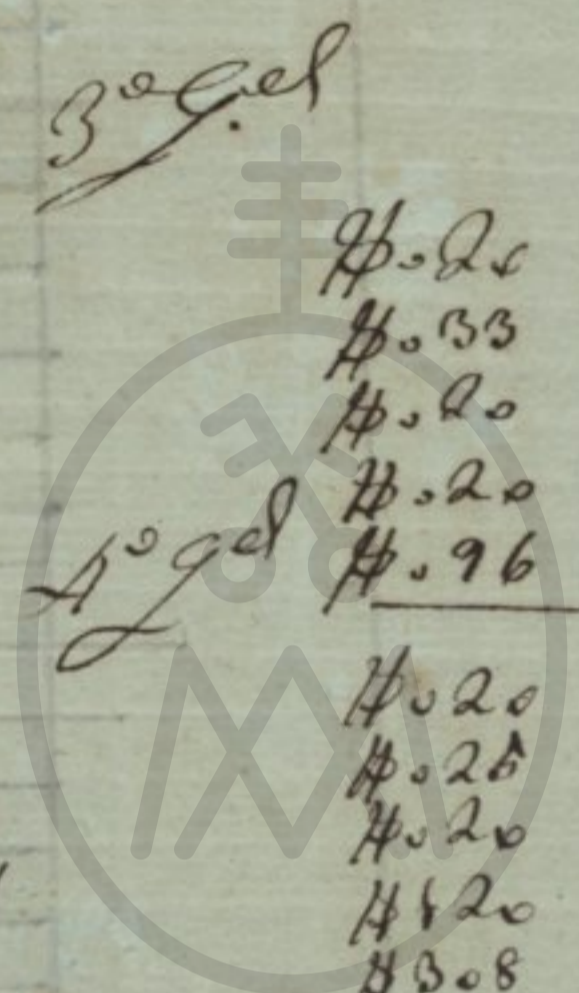 3º Gel
#. 20
#. 33
#. 20
#. 20
4º gel
#. 96
#. 20
#. 25
#. 20
#. 20
# 3.8